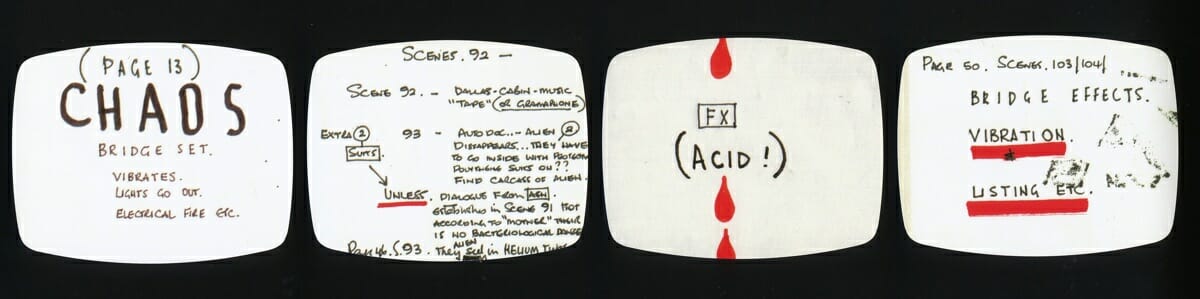 (PAGE 13)
CHAOS
BRIDGE SET.
VIBRATES.
LIGHTS GO OUT.
ELECTRICAL FIRE ETC.
SCENES. 92 —
SCENE 92. — DALLAS-CABIN-MUSIC
"TAPE" (OR GRAMAPHONE)
EXTRA 2 SUITS
93 — AUTODOC..- ALIEN
DISSAPPEARS... THEY HAVE
TO GO INSIDE WITH
POLYTHENE SUITS ON??
FIND CARCASS OF ALIEN.
UNLESS. DIALOGUE FROM ASH.
ESTABLISHED IN SCENE 91 THAT
ACCORDING TO "MOTHER" THERE
IS NO BACTERIOLOGICAL DANGER
S.93. They ALIEN in HELIUM
FX
(ACID!)
PAGE 50. SCENES. 103/104/
BRIDGE EFFECTS.
VIBRATION.
LISTING ETC.